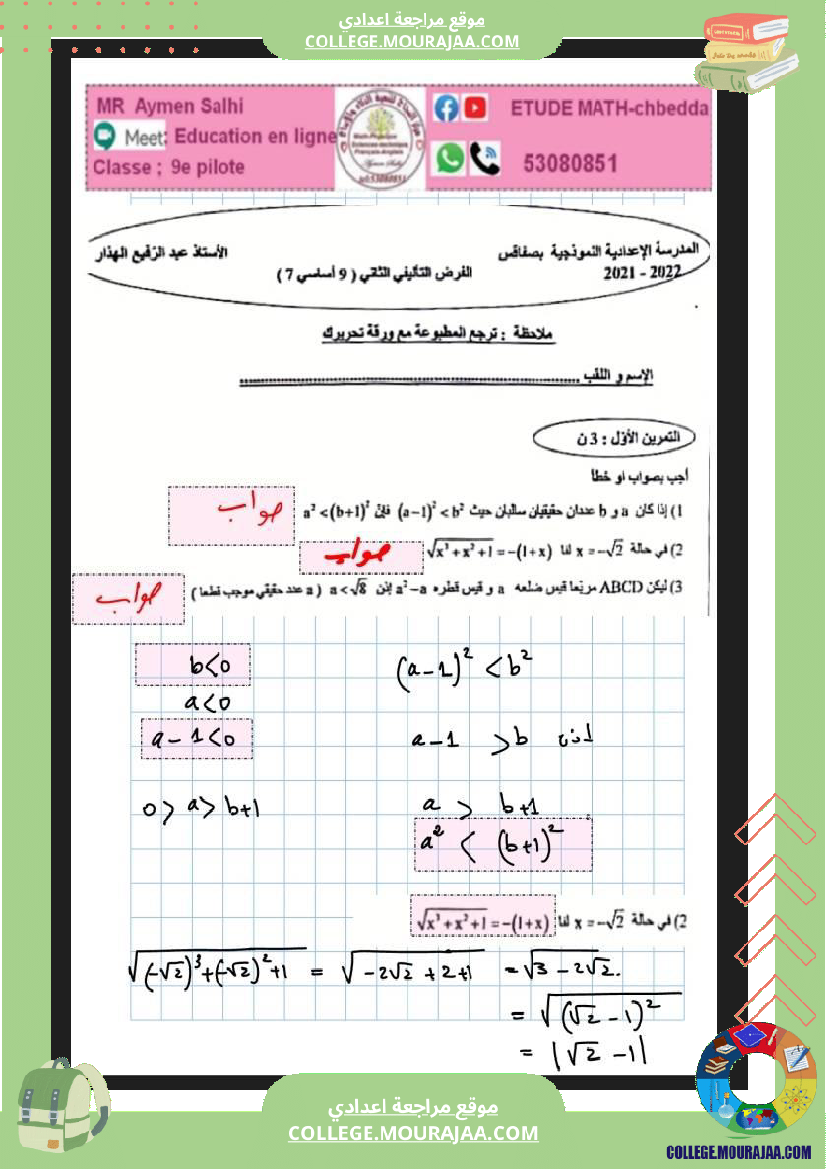 موقع مراجعة اعدادي
COLLEGE.MOURAJAA.COM
MR Aymen Salhi
Meet: Education en ligne
Classe ; 9e pilote
ETUDE MATH-chbedda
53080851
المدرسة الإعدادية النموذجية بصفاقس
الأستاذ عبد الرّفيع الهذار
2021 - 2022
الفرض التأليفي الثاني ( 9 أساسي 7 )
ملاحظة : ترجع المطبوعة مع ورقة تحريرك
الإسم و اللقب ........................................
التمرين الأوّل : 3 ن
أجب بصواب او خطأ
1) إذا كان a و b عددان حقيقيان سالبان حيث (a−1)² < b² فإنّ a² < (b+1)² صواب
2) في حالة x = −√2 لنا √(x³+x²+1) = −(1+x) صواب
3) ليكن ABCD مربّعا قيس ضلعه a و قيس قطره a²−a إذن a < √8 ( a عدد حقيقي موجب قطعا ) صواب
b<0 (a−1)² < b²
a<0
a−1<0 a−1 > b اذن
0 > a > b+1 a > b+1
a² < (b+1)²
2) في حالة x = −√2 لنا √(x³+x²+1) = −(1+x)
√((−√2)³+(−√2)²+1) = √(−2√2+2+1) = √(3−2√2).
= √((√2−1)²)
= |√2−1|
موقع مراجعة اعدادي
COLLEGE.MOURAJAA.COM
COLLEGE.MOURAJAA.COM